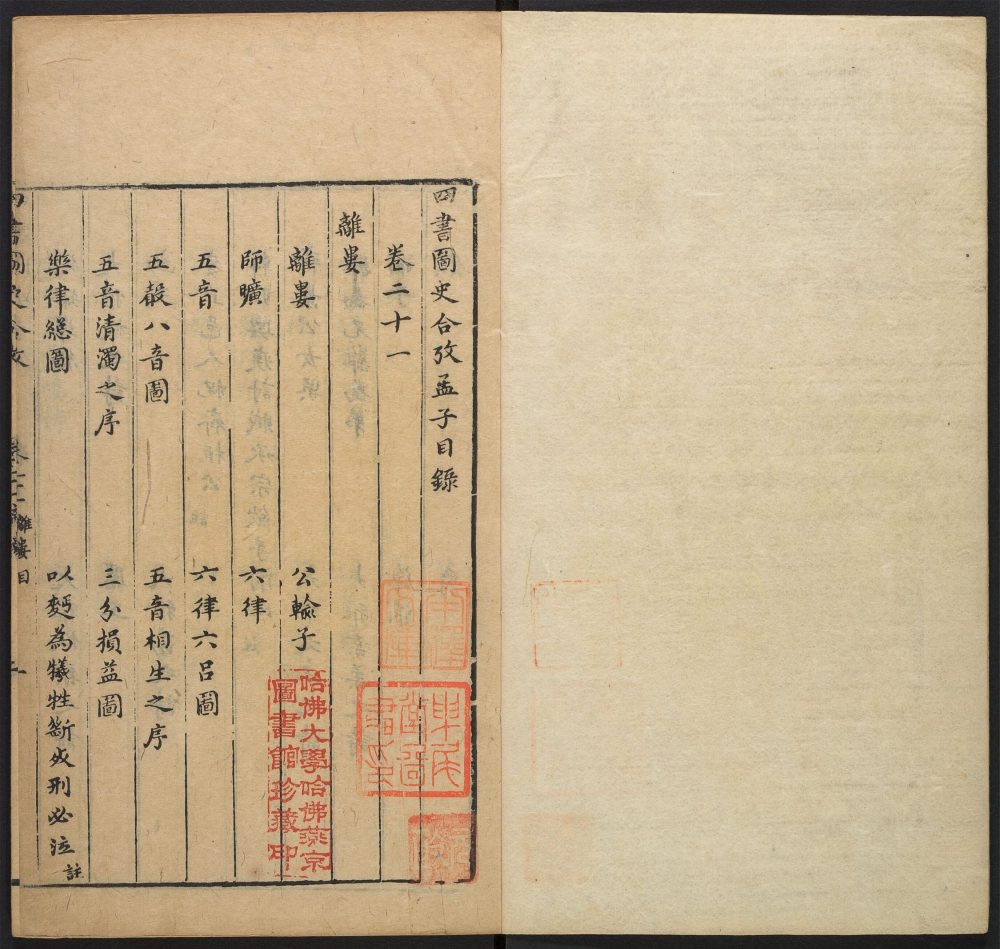 四書圖史合攷孟子目錄
卷二十一
離婁
離婁 公輸子
師曠 六律
五音 六律六呂圖
五聲八音圖 五音相生之序
五音清濁之序 三分損益圖
樂律總圖 以麪為犧牲斷死刑必泣 註
四書圖史合攷 離婁目
哈佛大學哈佛燕京
圖書館珍藏印